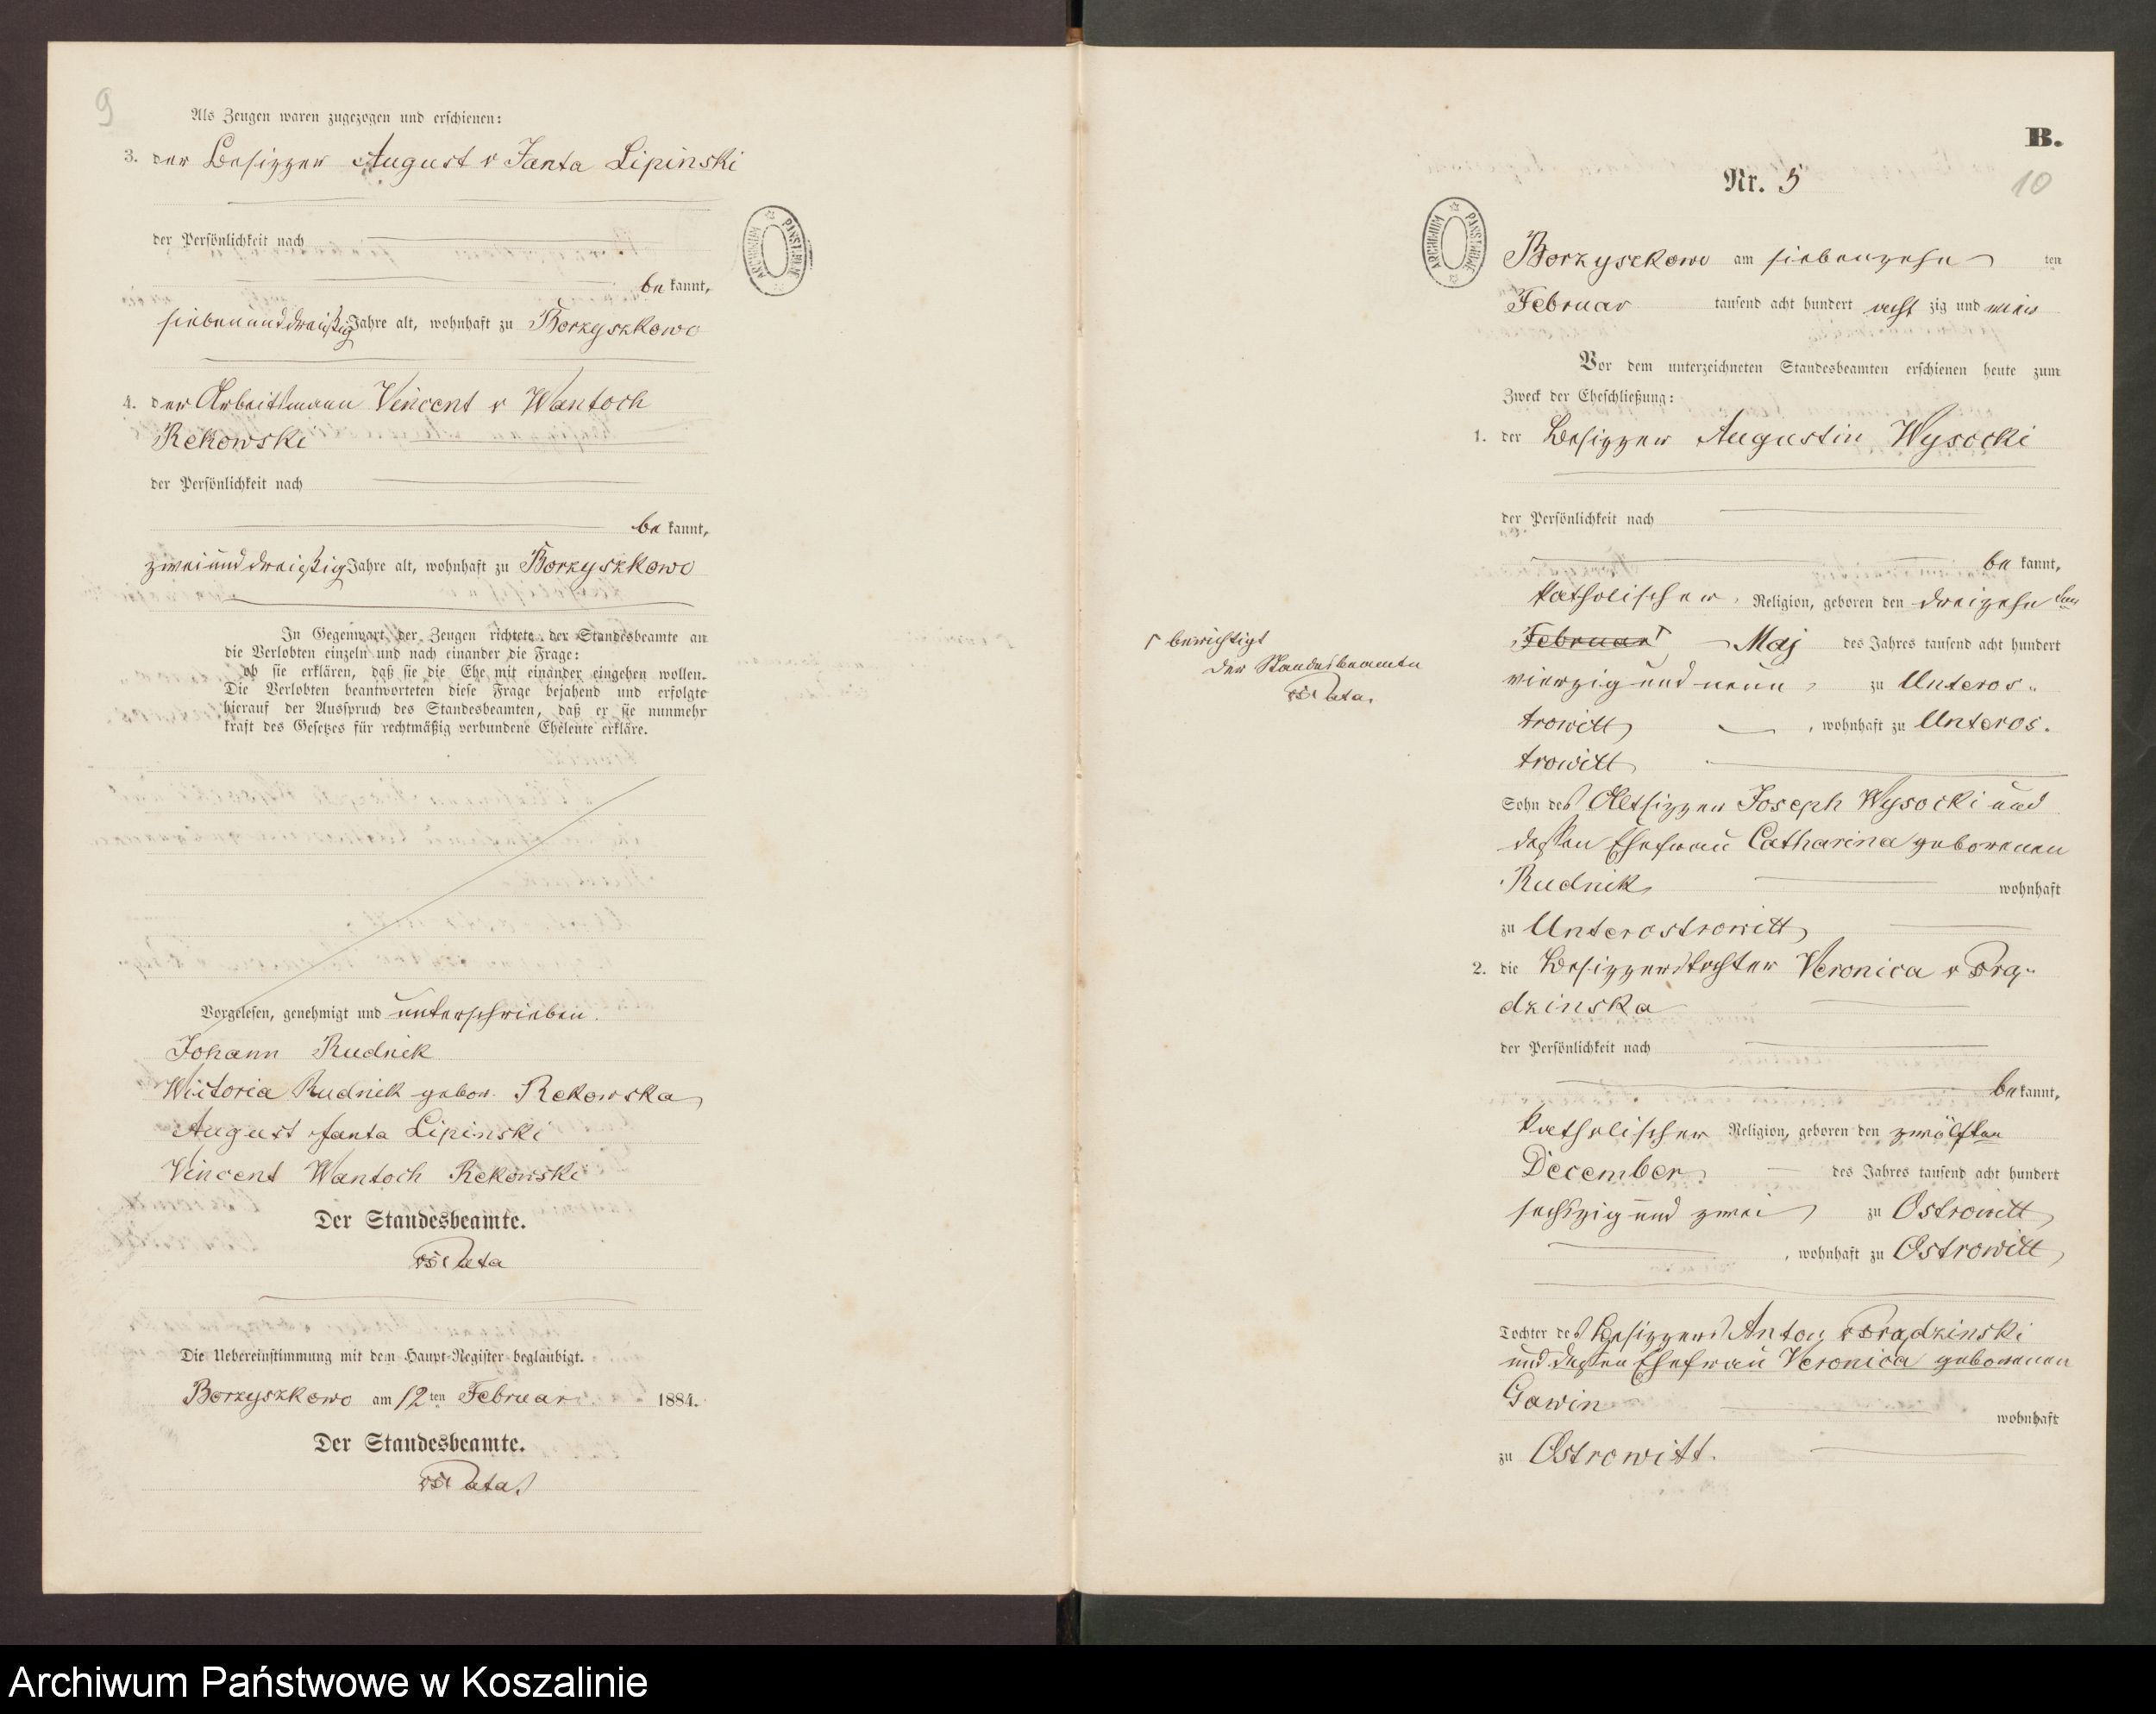 9
Als Zeugen waren zugezogen und erschienen:
3. der Besitzer August v Janta Lipinski
der Persönlichkeit nach
be kannt,
siebenunddreißig Jahre alt, wohnhaft zu Borzyszkowo
4. der Arbeitsmann Vincent v Wantoch
Rekowski
der Persönlichkeit nach
be kannt,
zweiunddreißig Jahre alt, wohnhaft zu Borzyszkowo
In Gegenwart der Zeugen richtete der Standesbeamte an
die Verlobten einzeln und nach einander die Frage:
ob sie erklären, daß sie die Ehe mit einander eingehen wollen.
Die Verlobten beantworteten diese Frage bejahend und erfolgte
hierauf der Ausspruch des Standesbeamten, daß er sie nunmehr
kraft des Gesetzes für rechtmäßig verbundene Eheleute erkläre.
Vorgelesen, genehmigt und unterschrieben.
Johann Rudnik
Wictoria Rudnik gebor. Rekowska
August Janta Lipinski
Vincent Wantoch Rekowski
Der Standesbeamte.
Die Uebereinstimmung mit dem Haupt-Register beglaubigt.
Borzyszkowo am 12ten Februar 1884.
Der Standesbeamte.
ARCHIWUM PAŃSTWOWE
B.
Nr. 5
10
ARCHIWUM PAŃSTWOWE
Borzysckowo am siebenzehn ten
Februar tausend acht hundert acht zig und vier
Vor dem unterzeichneten Standesbeamten erschienen heute zum
Zweck der Eheschließung:
1. der Besitzer Augustin Wysocki
der Persönlichkeit nach
be kannt,
katholischer Religion, geboren den dreizehn ten
Februar Γ Maj des Jahres tausend acht hundert
vierzig und neun zu Unteros-
trowitt, wohnhaft zu Unteros-
trowitt
Sohn des Altsitzer Joseph Wysocki und
dessen Ehefrau Catharina geborenen
Rudnik wohnhaft
zu Unterostrowitt
Γ berichtigt
der Standesbeamte
2. die Besitzerstochter Veronica v Prą-
dzinska
der Persönlichkeit nach
be kannt,
katholischer Religion, geboren den zwölften
December des Jahres tausend acht hundert
sechszig und zwei zu Ostrowitt
, wohnhaft zu Ostrowitt
Tochter des Besitzers Anton v Prądzinski
und dessen Ehefrau Veronica geborenen
Gawin
wohnhaft
zu Ostrowitt.
Archiwum Państwowe w Koszalinie